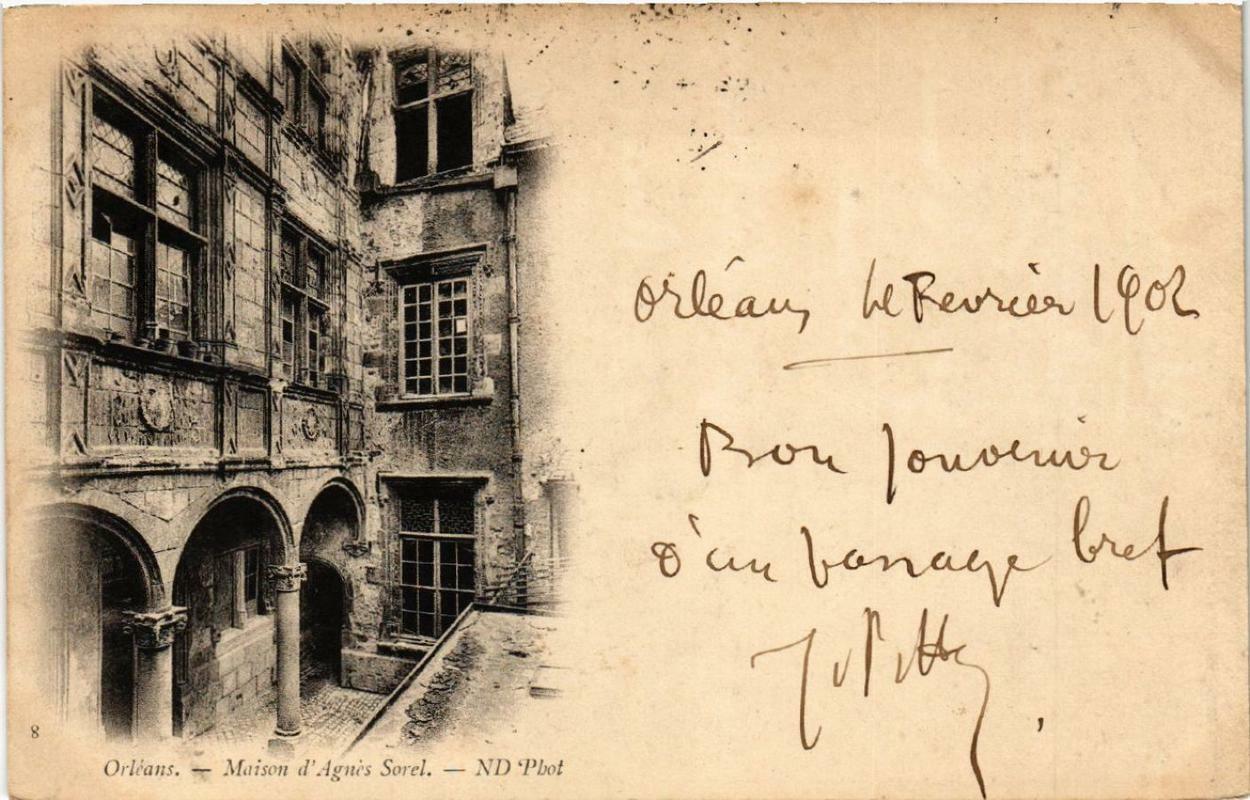 Orléans, le Fevrier 1902
Bon souvenir
d'un passage bref
8
Orléans. — Maison d'Agnès Sorel. — ND Phot